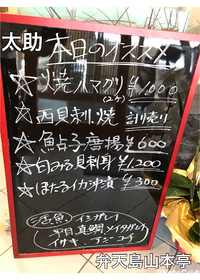 太助
本日のオススメ
☆焼ハマグリ(2ケ) ¥1000
☆西貝刺.焼 計り売り
☆鮑点子磨揚 ¥600
☆白みる貝刺身 ¥1,200
☆ほたるイカ沖漬 ¥300
活魚 イシガレイ
平目 真鯛 メイタガレイ
イサキ アジ コイ
弁天島山本亭